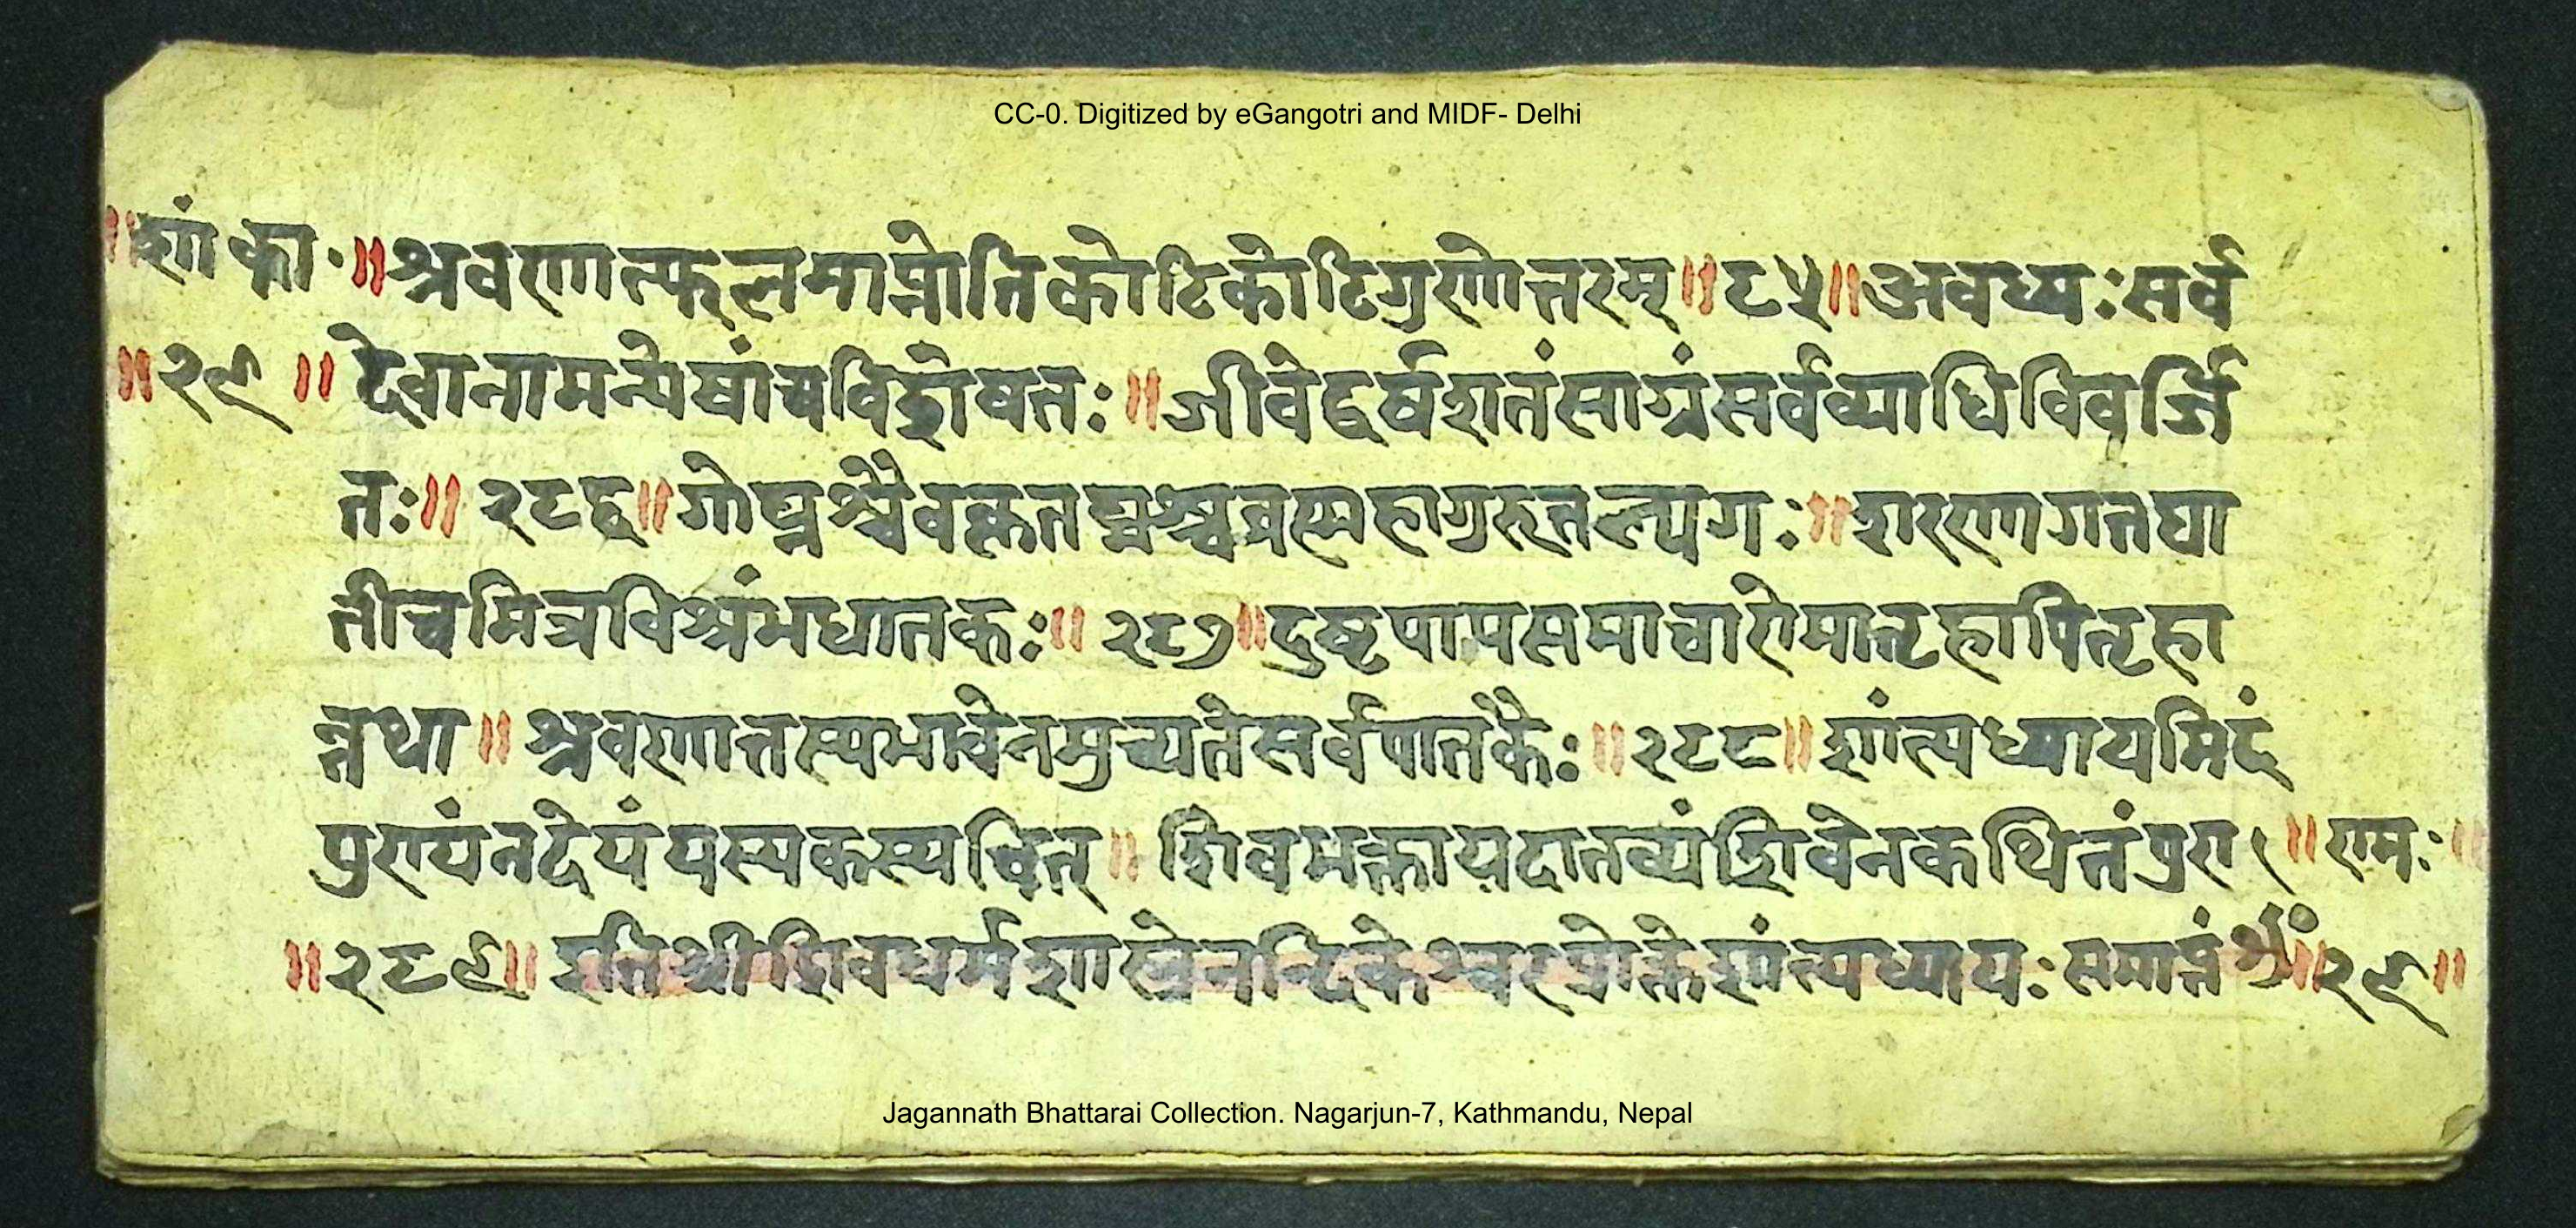 CC-0. Digitized by eGangotri and MIDF- Delhi
॥शां का.॥श्रवणात्फलमाप्नोतिकोटिकोटिगुणोत्तरम्॥८५॥अवध्यःसर्व
॥२९॥देवानामन्येषांचविशेषतः॥जीवेद्वर्षशतंसाग्रंसर्वव्याधिविवर्जि
तः॥२८६॥गोघ्नश्चैवकृतघ्नश्चब्रह्महागुरुतल्पगः॥शरणागतघा
तीचमित्रविश्रंभघातकः॥२८७॥दुष्टपापसमाचारोमातृहापितृहा
तथा॥श्रवणात्तस्यभावेनमुच्यतेसर्वपातकैः॥२८८॥शांत्यध्यायमिदं
पुण्यंनदेयंयस्यकस्यचित्॥शिवभक्तायदातव्यंशिवेनकथितंपुरा॥रामः॥
॥२८९॥इतिश्रीशिवधर्मशास्त्रेनन्दिकेश्वरप्रोक्तेशांत्यध्यायःसमाप्तं॥२९॥
Jagannath Bhattarai Collection. Nagarjun-7, Kathmandu, Nepal